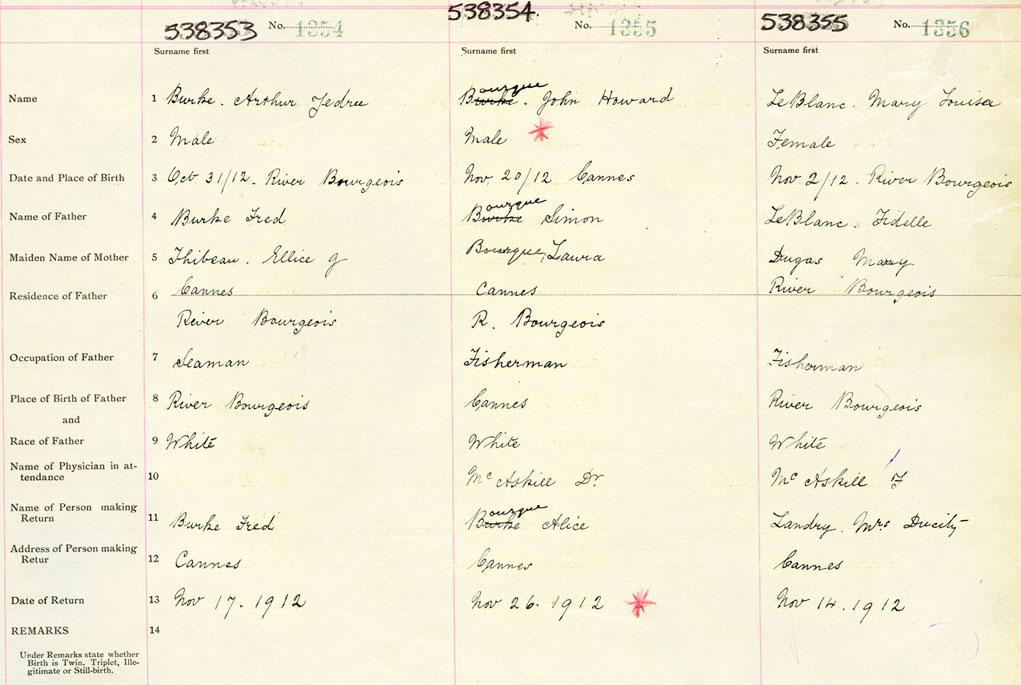 538353 No. 1354 538354. No. 1355 538355 No. 1356
Surname first Surname first Surname first
Name 1 Burke. Arthur Jedree Bourque Burke. John Howard LeBlanc. Mary Louisa
Sex 2 Male Male Female
Date and Place of Birth 3 Oct 31/12. River Bourgeois Nov. 20/12 Cannes Nov 2/12. River Bourgeois
Name of Father 4 Burke Fred Bourque Burke Simon LeBlanc. Fidelle
Maiden Name of Mother 5 Thibeau. Ellice J Bourque, Laura Dugas Mary
Residence of Father 6 Cannes Cannes River Bourgeois
River Bourgeois R. Bourgeois
Occupation of Father 7 Seaman Fisherman Fisherman
Place of Birth of Father 8 River Bourgeois Cannes River Bourgeois
and
Race of Father 9 White White White
Name of Physician in at-
tendance 10 McAskill Dr. McAskill F
Name of Person making
Return 11 Burke Fred Bourque Burke Alice Landry. Mrs
Address of Person making
Retur 12 Cannes Cannes Cannes
Date of Return 13 Nov 17. 1912 Nov 26. 1912 Nov 14. 1912
REMARKS 14
Under Remarks state whether
Birth is Twin, Triplet, Ille-
gitimate or Still-birth.